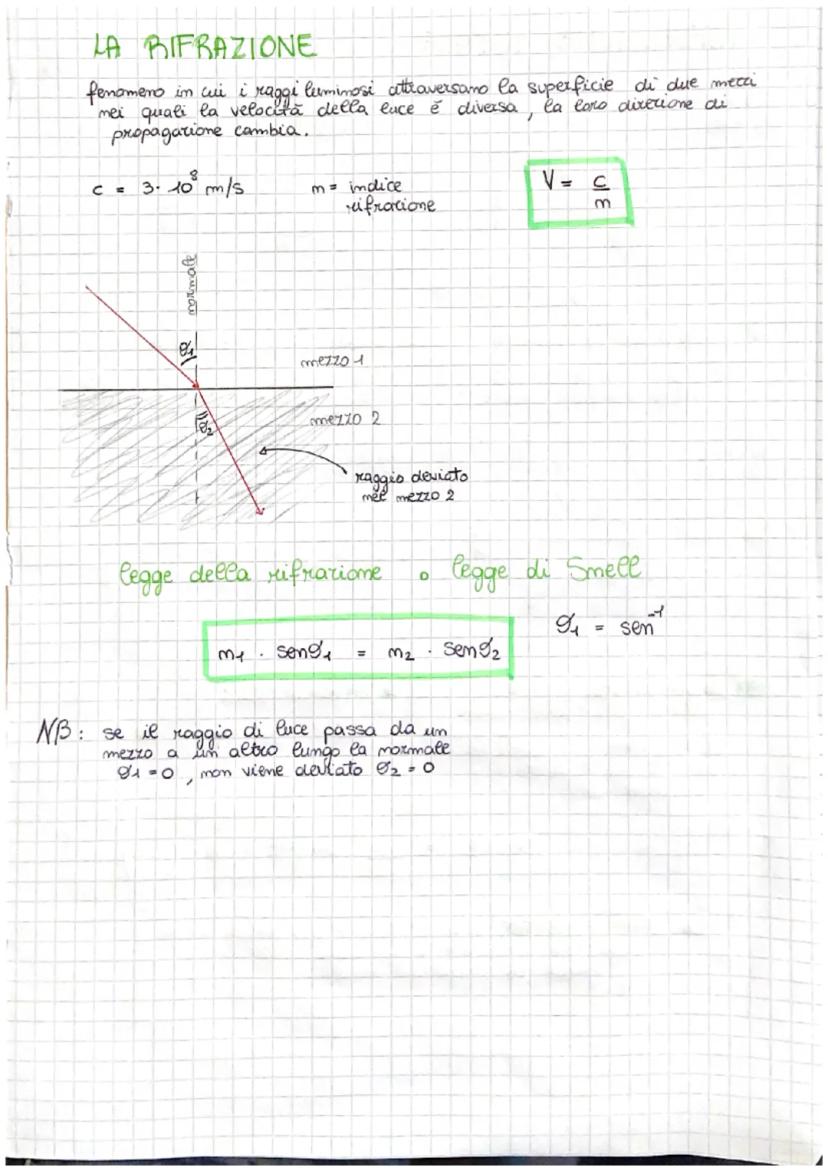 LA RIFRAZIONE
fenomeno in cui i raggi luminosi attraversano la superficie di due mezzi
nei quali la velocità della luce è diversa, la loro direzione di
propagazione cambia.
c = 3·10⁸ m/s
n = indice
rifrazione
V = c/n
normale
θ1
mezzo 1
θ2
mezzo 2
raggio deviato
nel mezzo 2
legge della rifrazione o legge di Snell
n1 · senθ1 = n2 · senθ2
θ1 = sen⁻¹
NB: se il raggio di luce passa da un
mezzo a un altro lungo la normale
θ1 = 0, non viene deviato θ2 = 0